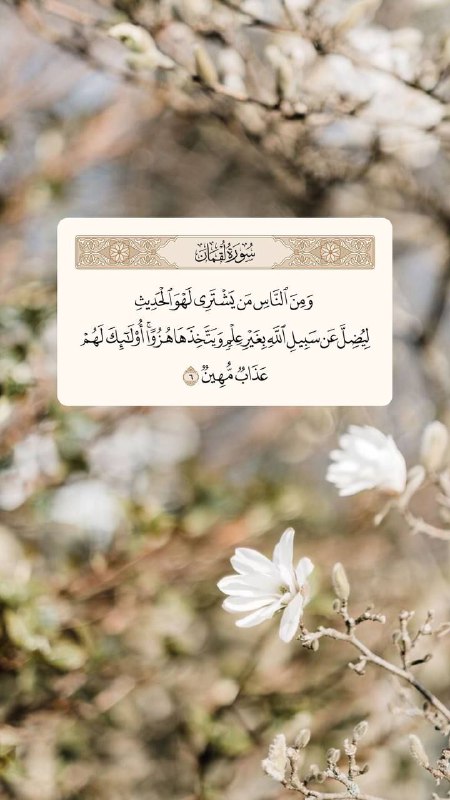 سُورَةُ لُقْمَانَ
وَمِنَ ٱلنَّاسِ مَن يَشْتَرِى لَهْوَ ٱلْحَدِيثِ
لِيُضِلَّ عَن سَبِيلِ ٱللَّهِ بِغَيْرِ عِلْمٍ وَيَتَّخِذَهَا هُزُوًا ۚ أُو۟لَـٰٓئِكَ لَهُمْ
عَذَابٌ مُّهِينٌ ٦